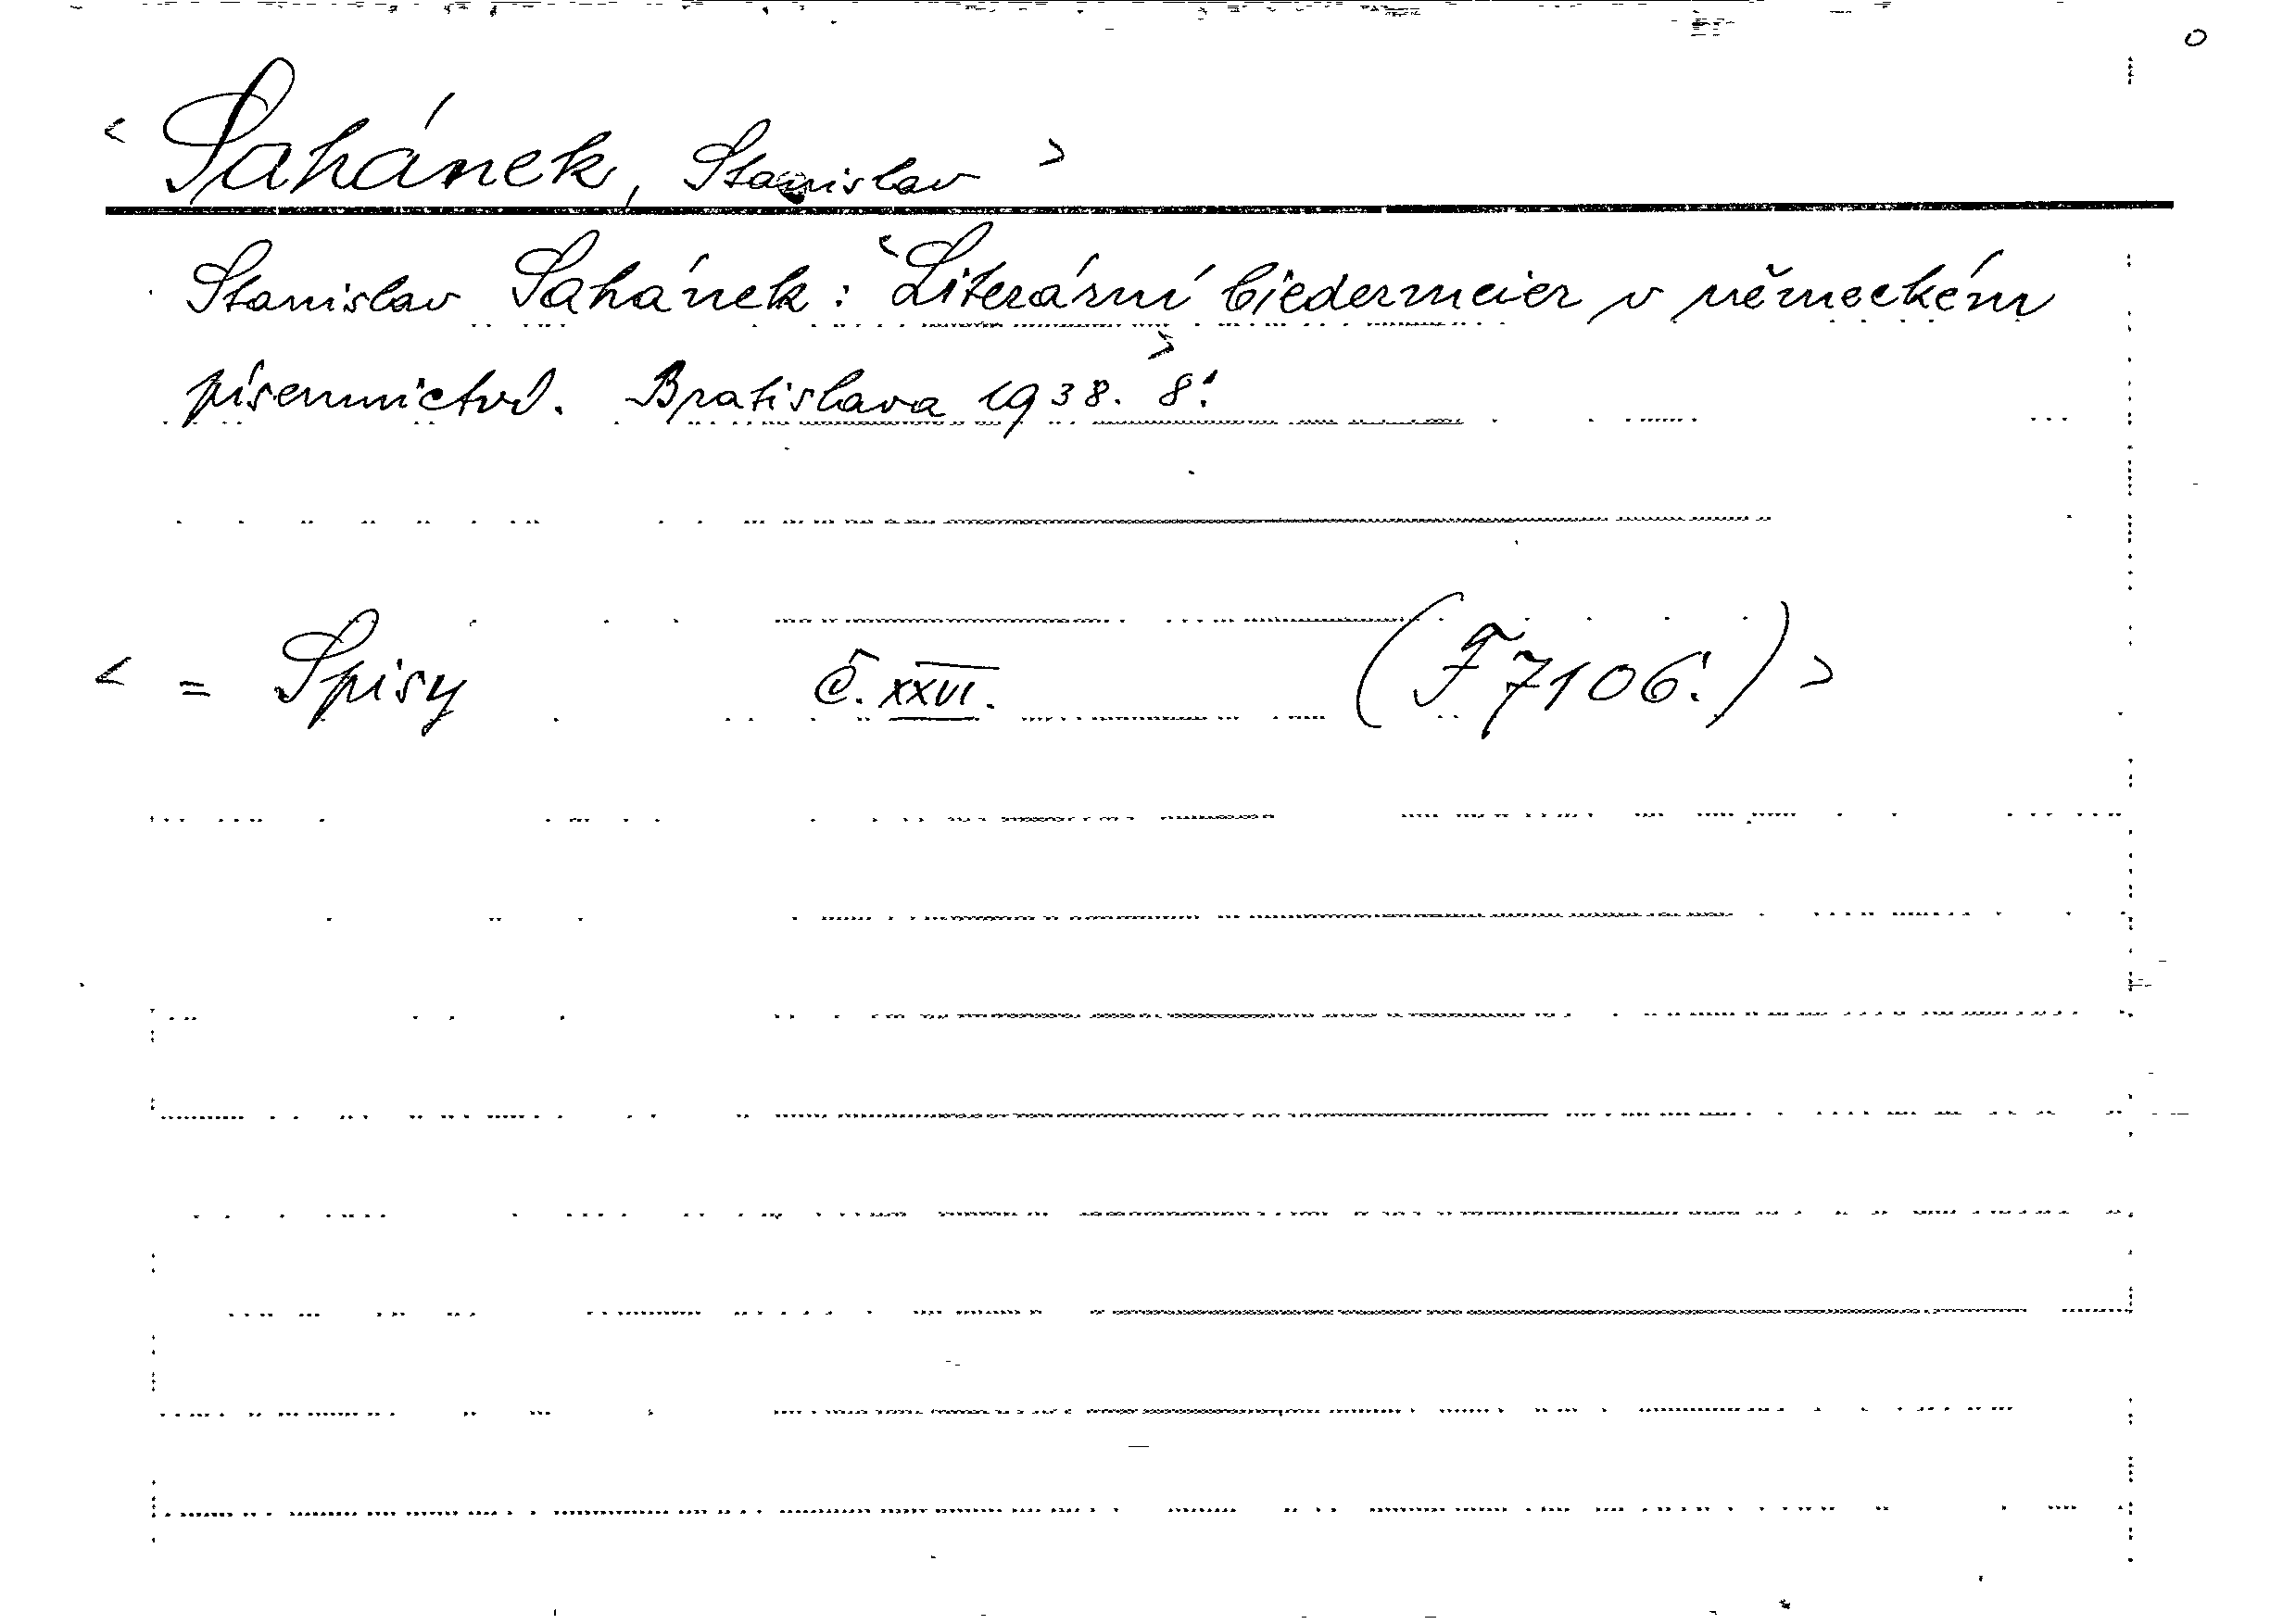 < Sahánek, Stanislav >
Stanislav Sahánek: <Literární biedermeier v německém
písemnictví. Bratislava 1938.> 8°.
< = Spisy č. XXVI. (F 7106.) >